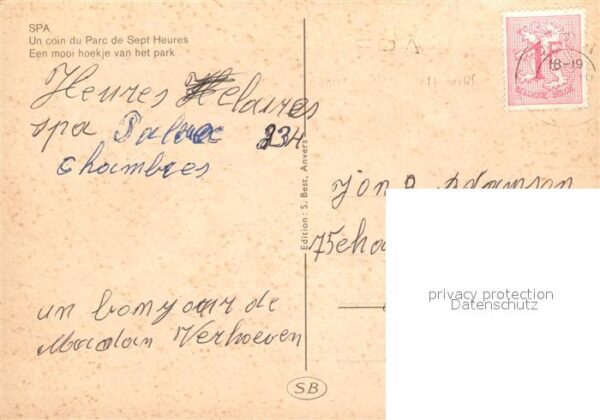 SPA
Un coin du Parc de Sept Heures
Een mooi hoekje van het park
1F
18-19
Heures Helaires
spa 234
chambres
Edition: S. Best, Anvers
un bonjour de
Madam Verhoeven
SB
privacy protection
Datenschutz